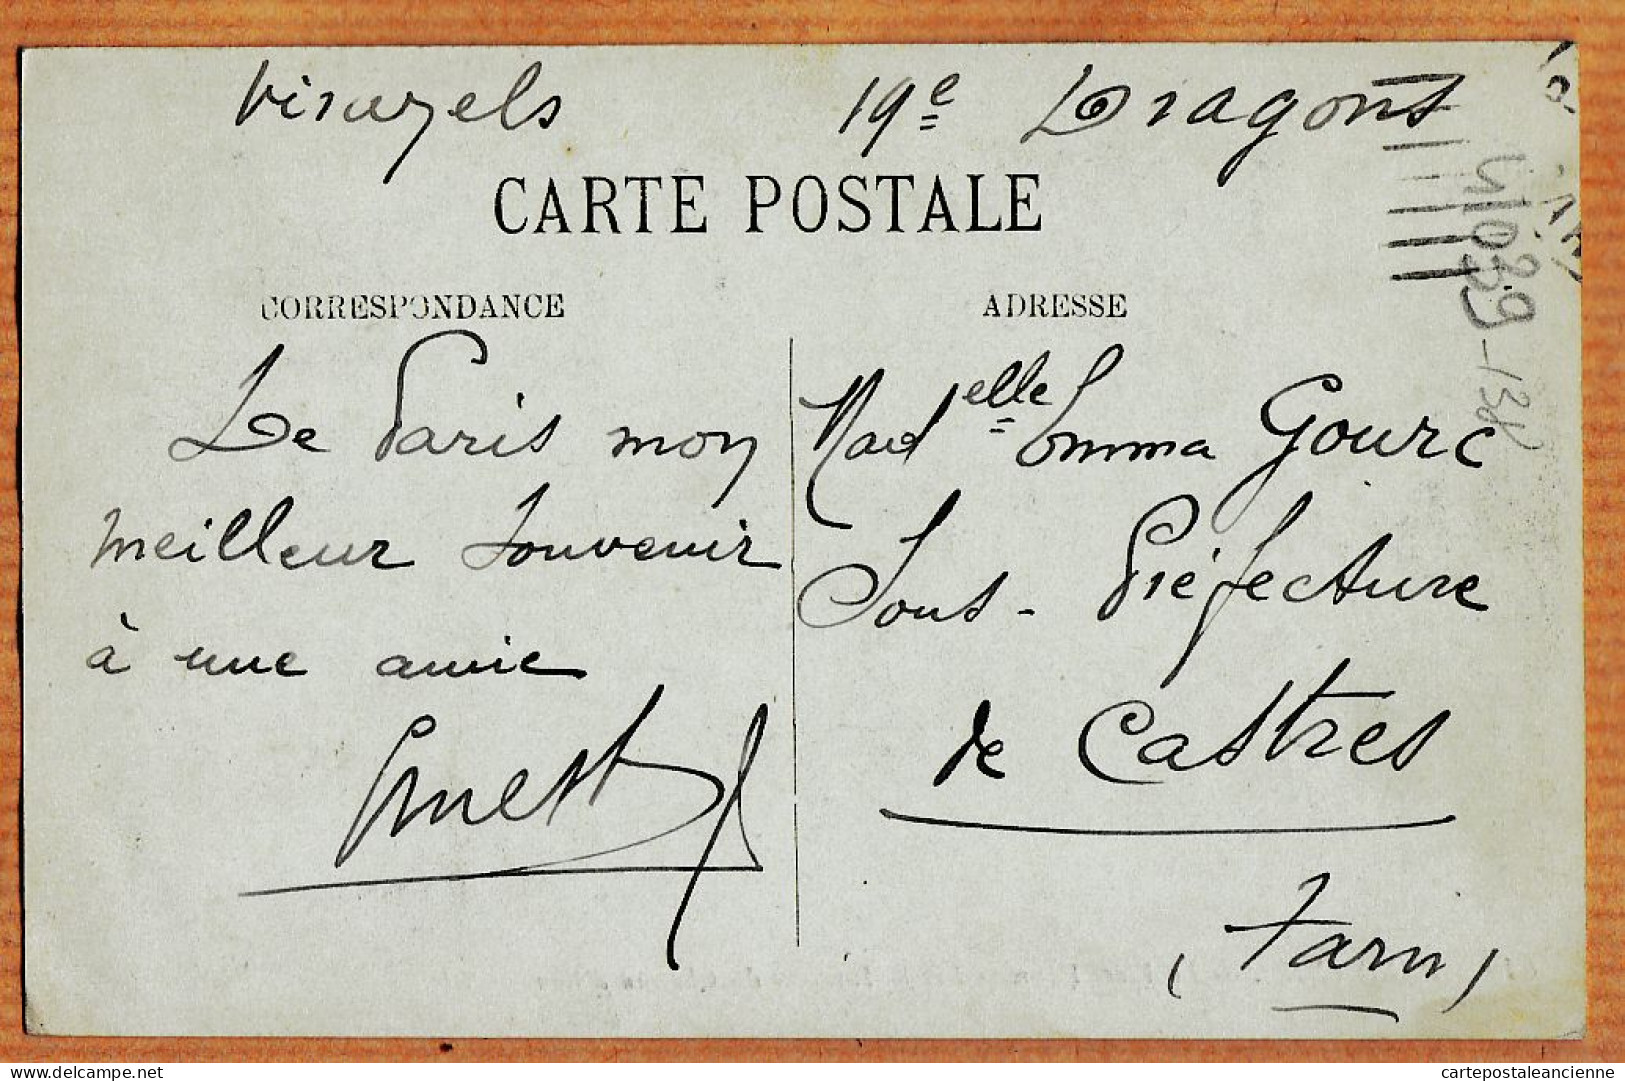 Virazels 19e Dragons
CARTE POSTALE
CORRESPONDANCE
ADRESSE
De Paris mon
meilleur souvenir
à une amie
Ernest
Madelle Emma Gourc
Sous-Préfecture
de Castres
(Tarn)
delcampe.net
cartepostaleancienne